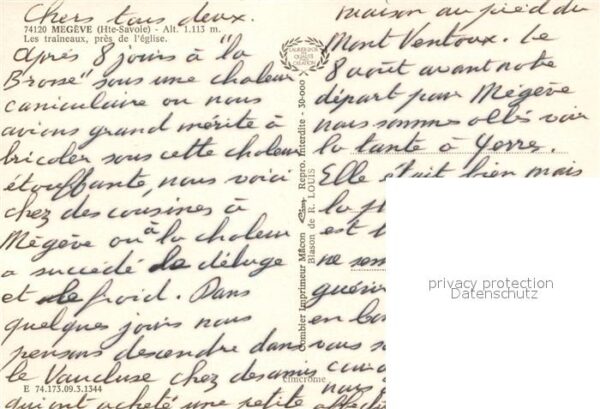 Chers tous deux.
74120 MEGÈVE (Hte-Savoie) - Alt. 1.113 m.
Les traîneaux, près de l'église.
Après 8 jours à "la
Brosse" sous une chaleur
caniculaire ou nous
avions grand mérite à
bricoler sous cette chaleur
étouffante, nous voici
chez des cousines à
Mégève où à la chaleur
a succédé le déluge
et le froid. Dans
quelques jours nous
pensons descendre dans
le Vaucluse chez des amis
qui ont acheté une petite
E 74.173.09.3.1344
Combier Imprimeur Mâcon Cim Repro. Interdite - 30-000
Blason de R. LOUIS
cimcrome
maison au pied du
Mont Ventoux. Le
8 août avant notre
départ pour Mégève
nous sommes allés voir
la tante à Yerre.
Elle était bien mais
la
est
ne
en
vous
nous
privacy protection
Datenschutz